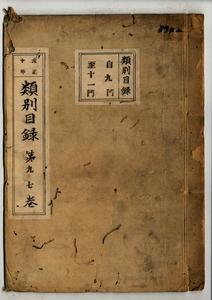 類別目録
自九門
至十一門
大正
十年
類別目録
第九七巻